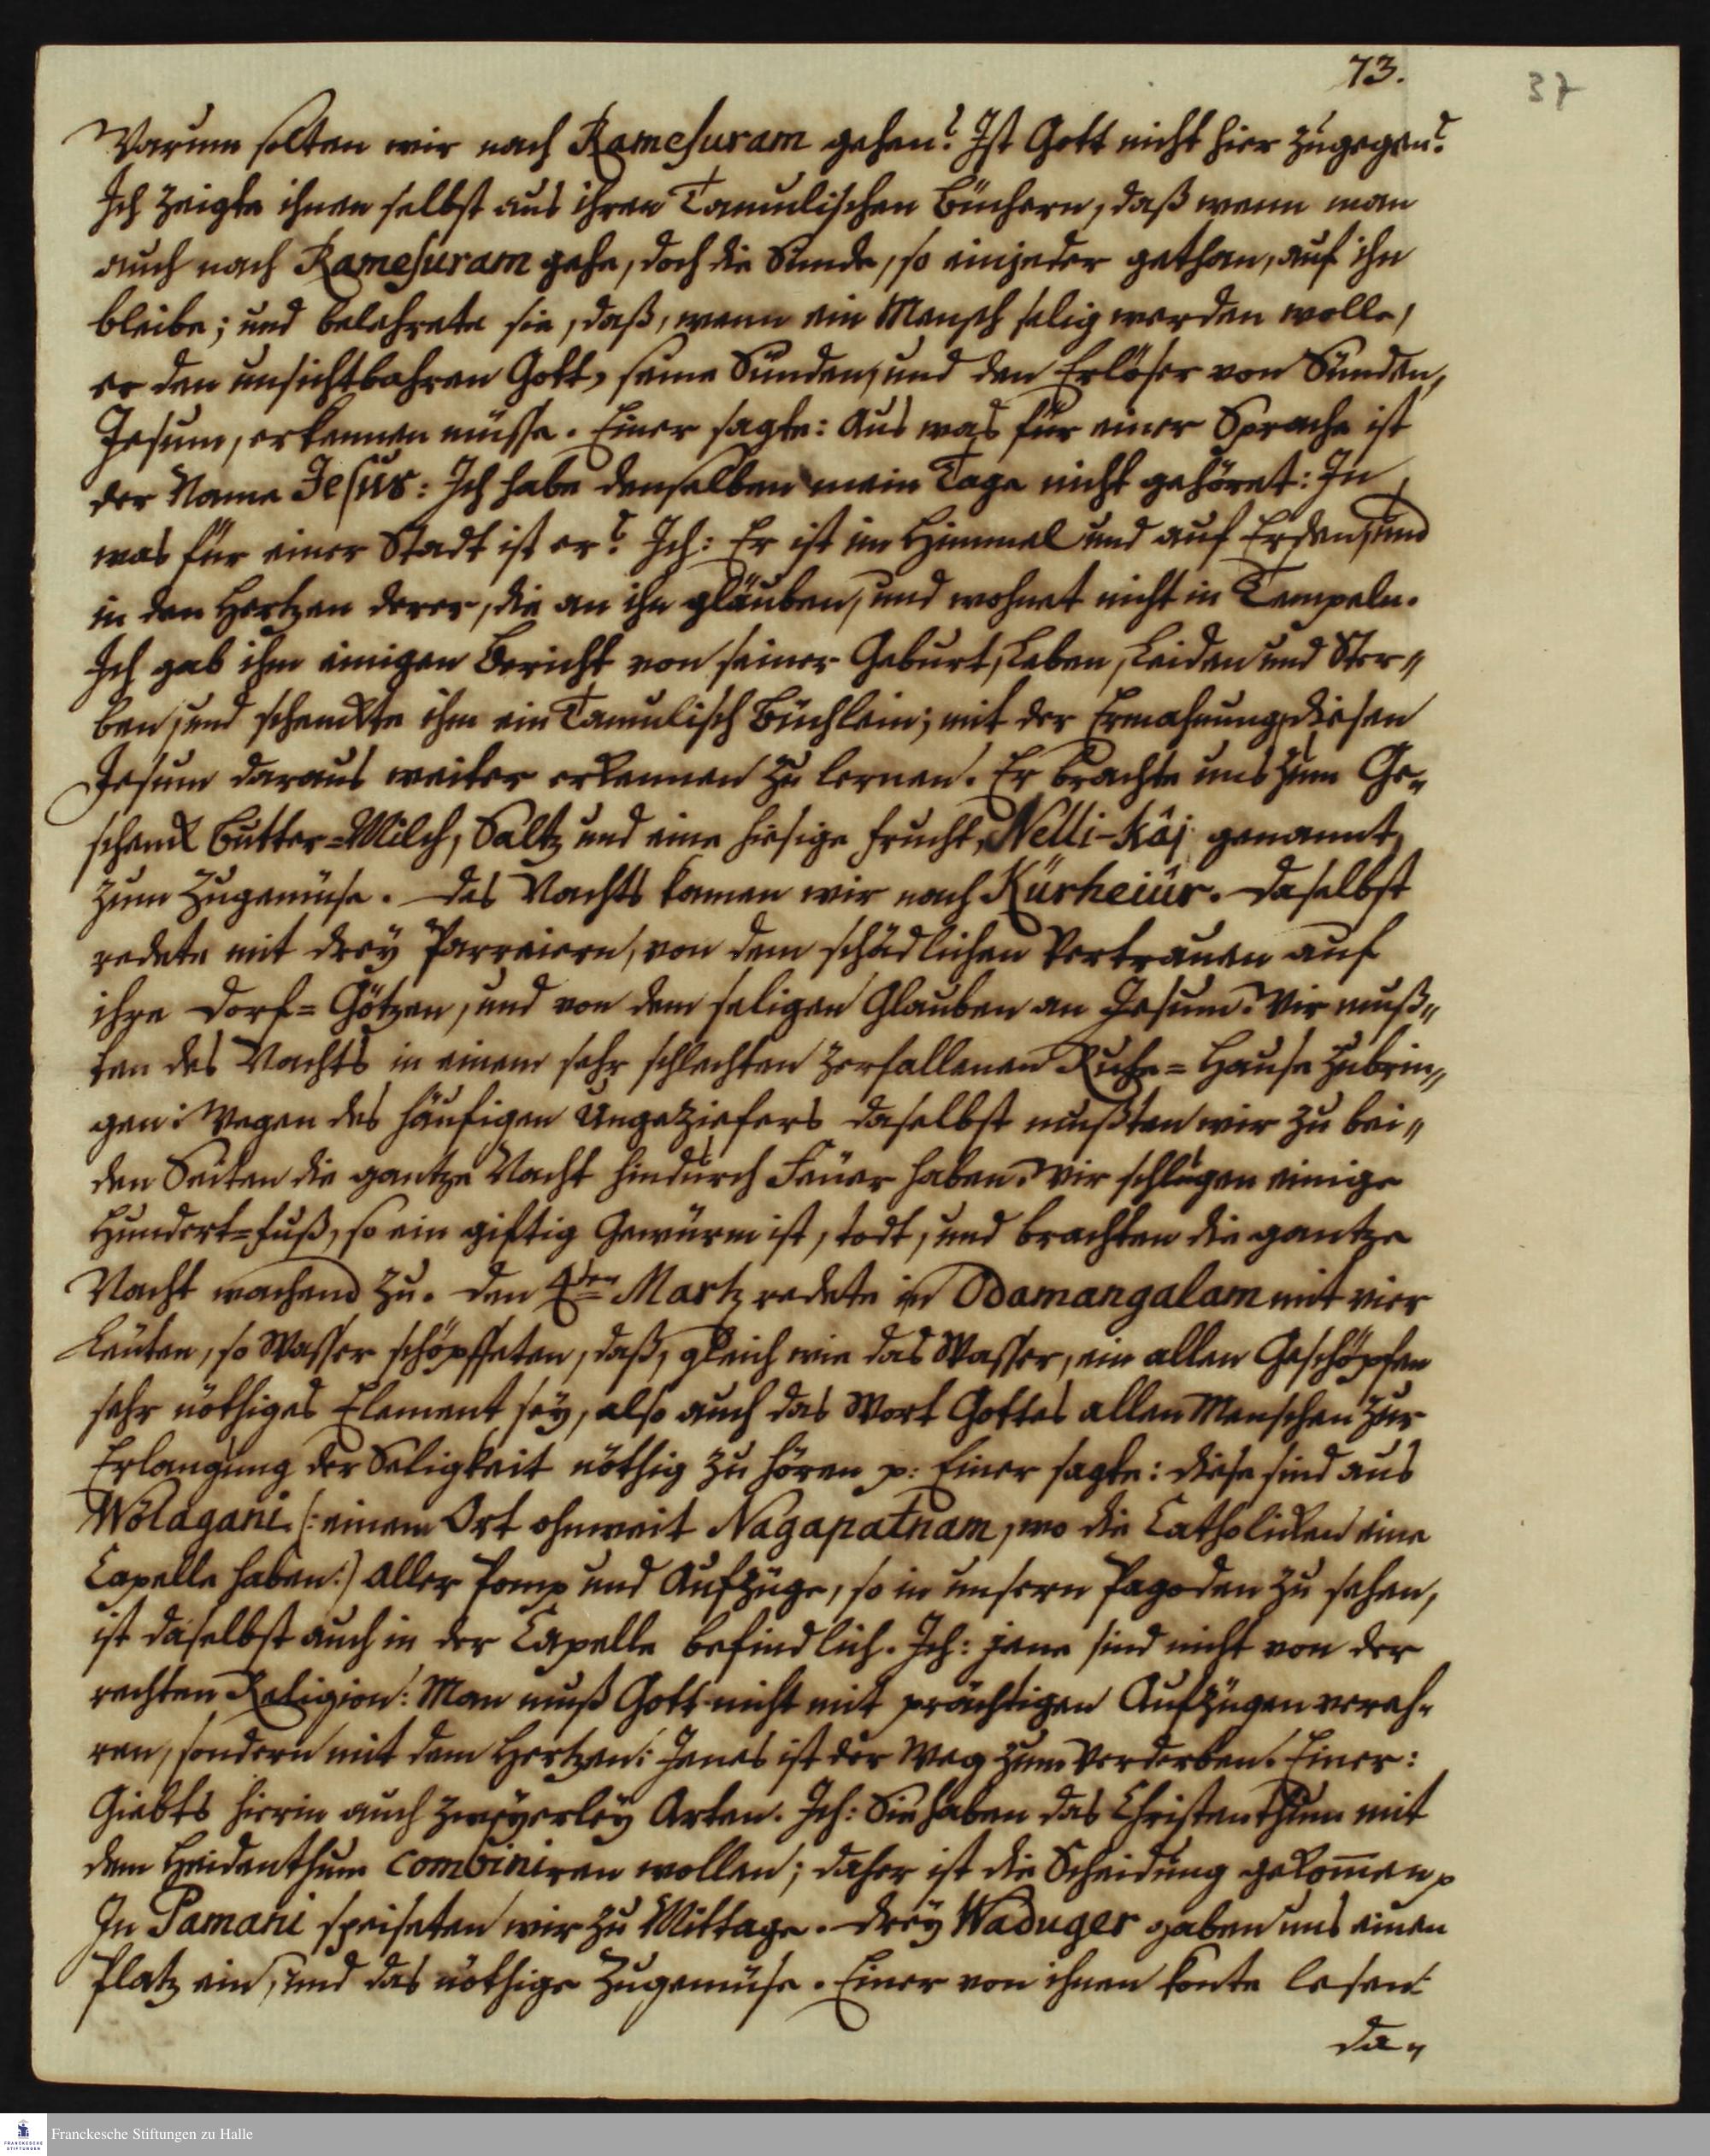 73.
37
Warum solten wir nach Ramesuram gehen? Ist Gott nicht hier zugegen?
Ich zeigte ihnen selbst aus ihren Tamulischen Büchern, daß wenn man
auch nach Ramesuram gehe, doch die Sünde, so einjeder gethan, auf ihn
bleibe; und belehrete sie, daß, wenn ein Mensch selig werden wolle,
er den unsichtbahren Gott, seine Sünden, und den Erlöser von Sünden,
Jesum, erkennen müsse. Einer sagte: Aus was für einer Sprache ist
der Name Jesus: Ich habe denselben mein Tage nicht gehöret: In
was für einer Stadt ist er? Ich: Er ist im Himmel und auf Erden, und
in den Hertzen derer, die an ihn gläuben, und wohnet nicht in Tempeln.
Ich gab ihm einigen Bericht von seiner Geburt, Leben, Leiden und Ster-
ben, und schenckte ihm ein Tamulisch Büchlein; mit der Ermahnung, diesen
Jesum daraus weiter erkennen zu lernen. Er brachte uns zum Ge-
schenck Butter-Milch, Saltz und eine hiesige Frucht, Nelli-kâj genannt,
zum Zugemüse. Des Nachts kamen wir nach Kürheiür. Daselbst
redete mit drey Parreiern, von dem schädlichen Vertrauen auf
ihre Dorf-Götzen, und von dem seligen Glauben an Jesum. Wir muß-
ten des Nachts in einem sehr schlechten zerfallenen Ruhe-Hause zubrin-
gen: Wegen des häufigen Ungeziefers daselbst mußten wir zu bei-
den Seiten die gantze Nacht hindurch Feuer haben. Wir schlugen einige
Hundert-Fuß, so ein giftig Gewürm ist, todt, und brachten die gantze
Nacht wachend zu. Den 4ten Martz redete in Odamangalam mit vier
Leuten, so Wasser schöpffeten, daß, gleich wie das Wasser, ein allen Geschöpfen
sehr nöthiges Element sey, also auch das Wort Gottes allen Menschen zur
Erlangung der Seligkeit nöthig zu hören p: Einer sagte: Diese sind aus
Wölagani (: einem Ort ohnweit Nagapatnam, wo die Catholicken eine
Capelle haben:) Aller Pomp und Aufzüge, so in unsern Pagoden zu sehen,
ist daselbst auch in der Capelle befindlich. Ich: jene sind nicht von der
rechten Religion: Man muß Gott nicht mit prächtigen Aufzügen vereh-
ren, sondern mit dem Hertzen: Jenes ist der Weg zum Verderben. Einer:
Giebts hierin auch zweyerley Arten. Ich: Sie haben das Christenthum mit
dem Heidenthum combiniren wollen; daher ist die Scheidung gekom̅en p
In Pamani speiseten wir zu Mittage. Drey Waduger gaben uns einen
Platz ein, und das nöthige Zugemüse. Einer von ihnen konte lesen:
da-
Franckesche Stiftungen zu Halle
FRANCKESCHE
STIFTUNGEN